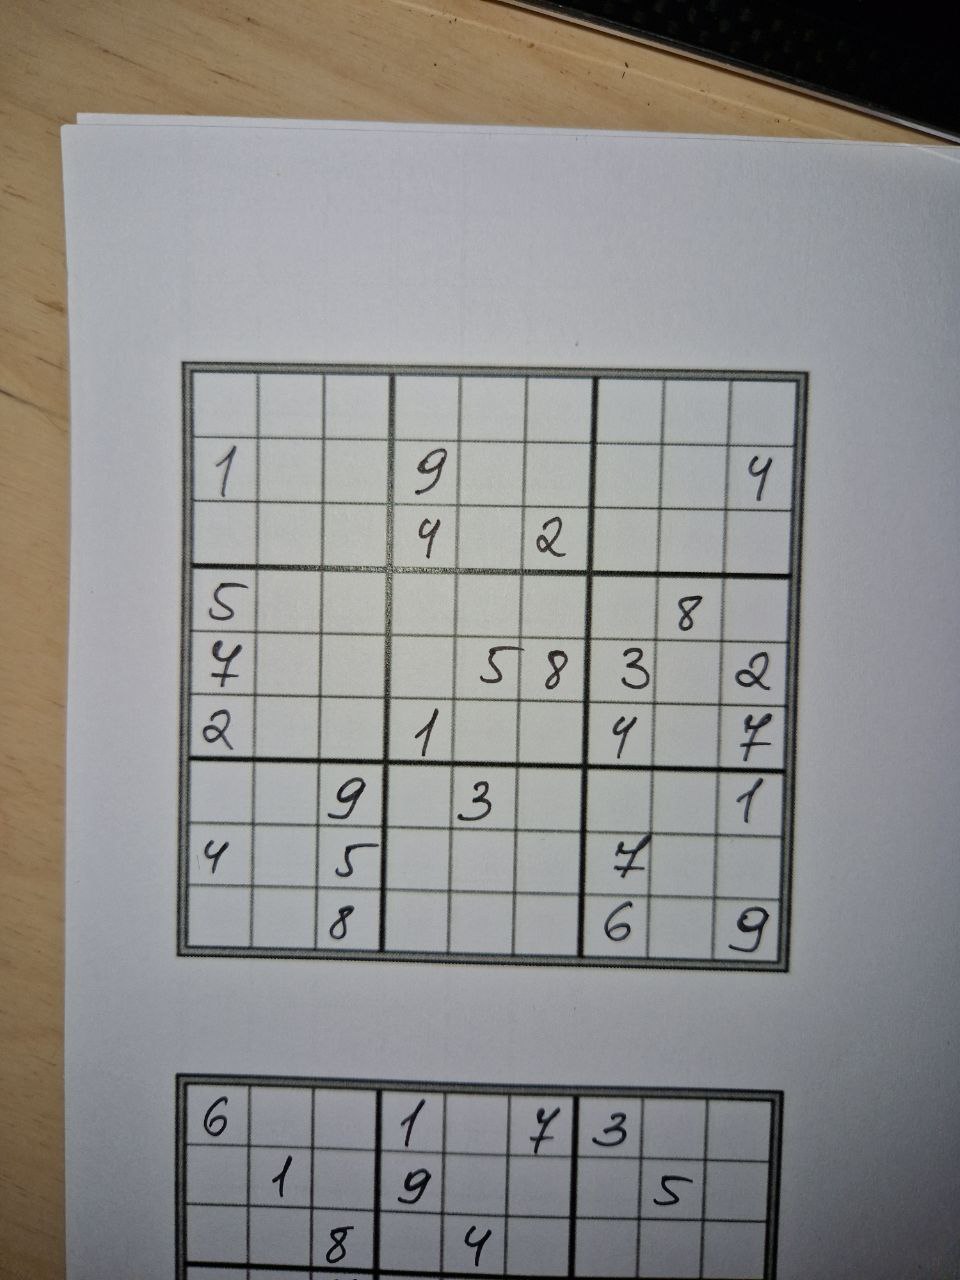 1 9 4
4 2
5 8
7 5 8 3 2
2 1 4 7
9 3 1
4 5 7
8 6 9
6 1 7 3
1 9 5
8 4